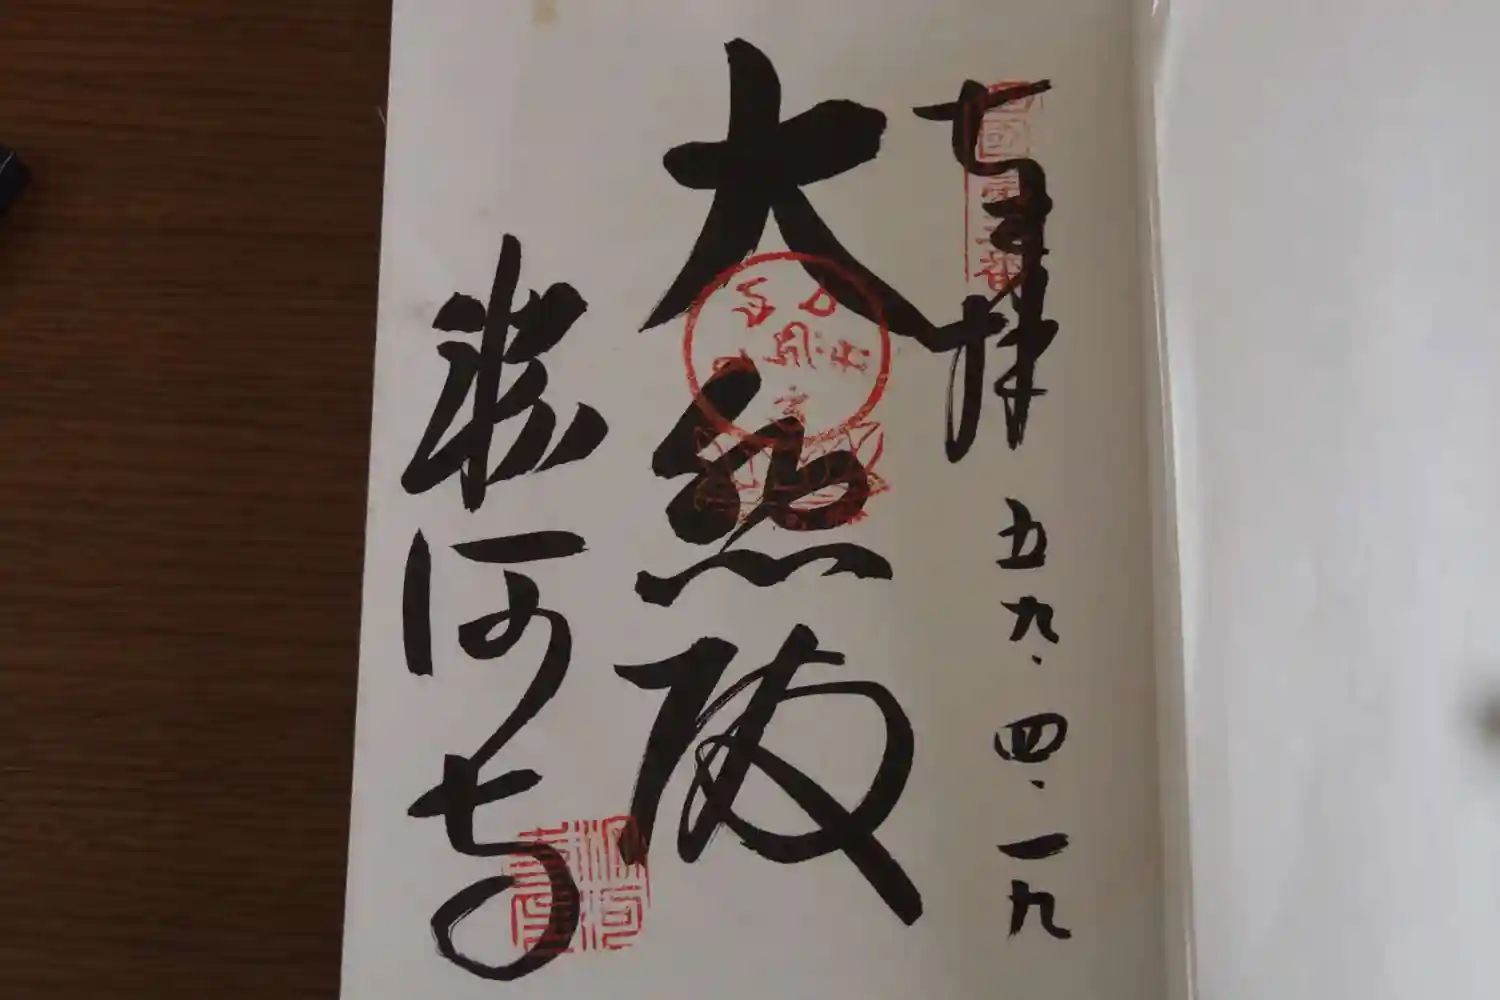 奉拝 五九・四・一九
大悲殿
粉河寺